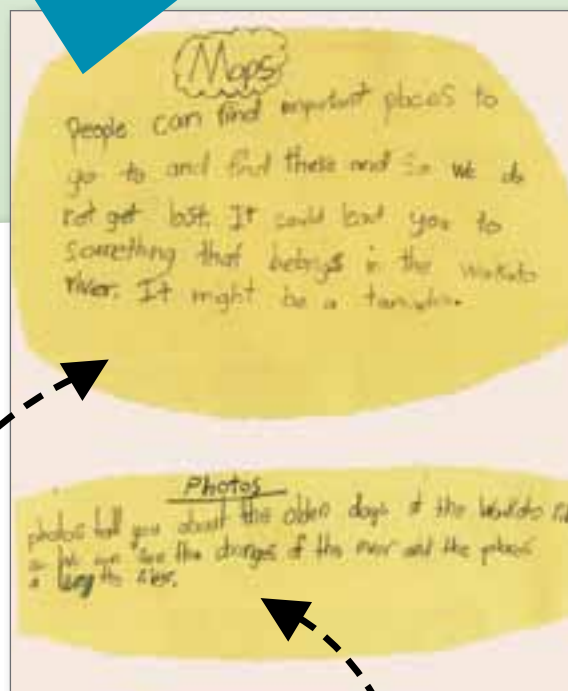 Maps
People can find important places to
go to and find these and so we do
not get lost. It could lead you to
something that belongs in the Waikato
river. It might be a taniwha.
Photos
photos tell you about the olden days of the Waikato
so we can see the changes of the river and the places
the river.